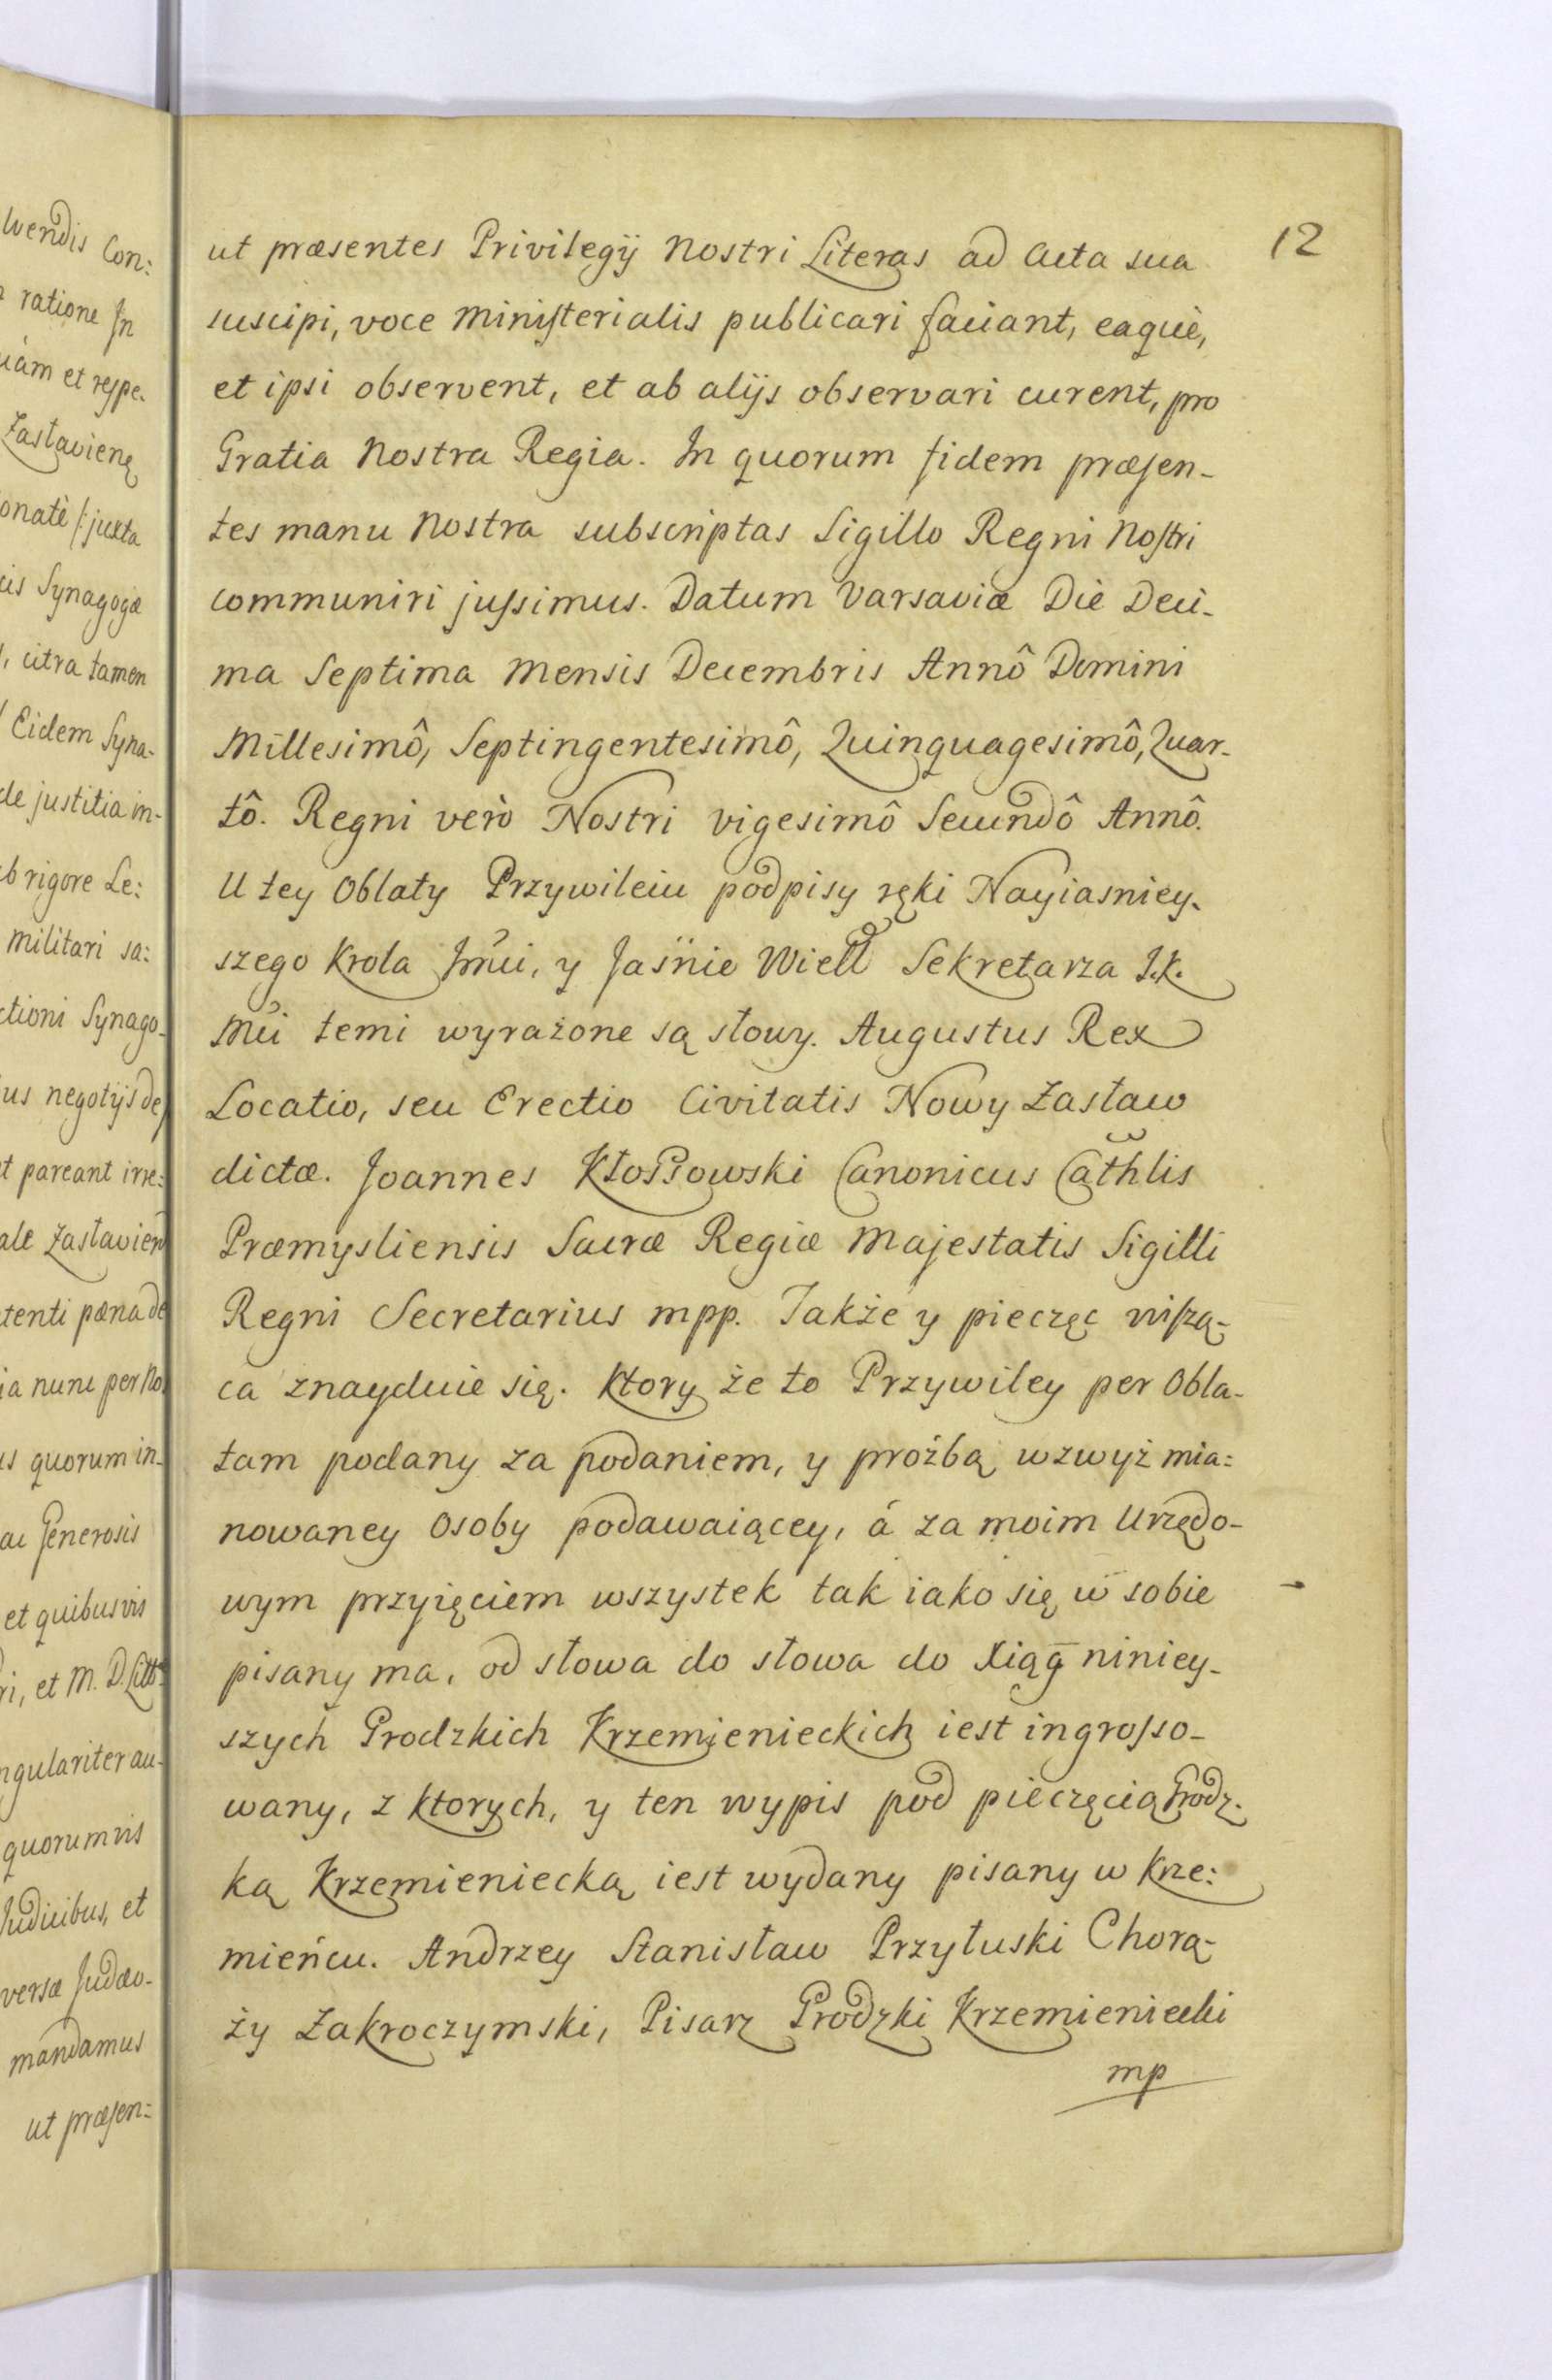 lvendis Con:
ratione In
uàm et respe-
Zasłavienę
onatè /: juxta
cis Synagogæ
, citra tamen
Eidem Syna-
de justitia in-
b rigore Le:
militari sa:
ctioni Synago-
us negotijs de
t pareant irre:
ale Zasłavien
tenti pœna de
ia nunc per No
is quorum in-
ac Generosis
et quibusvis
ri, et M. D. Litt
ngulariter au-
quorumvis
Judicibus, et
versæ Judæo-
mandamus
ut præsen:
12
ut præsentes Privilegÿ Nostri Literas ad Acta sua
suscipi, voce Ministerialis publicari faciant, eaquè,
et ipsi observent, et ab alÿs observari curent, pro
Gratia Nostra Regia. In quorum fidem præsen-
tes manu Nostra subscriptas Sigillo Regni Nostri
communiri jussimus. Datum Varsaviæ Diè Deci-
ma Septima Mensis Decembris Annô Domini
Millesimô, Septingentesimô, Quinquagesimô, Quar-
tô. Regni verò Nostri vigesimô Secundô Annô.
U tey Oblaty Przywileiu podpisy ręki Nayiasniey-
szego Krola Jmći, y Jaśnie Wiell Sekretarza J.K.
Mći temi wyrażone są słowy. Augustus Rex
Locatio, seu Erectio Civitatis Nowy Zasław
dictæ. Joannes Kłossowski Canonicus Cathlis
Præmysliensis Sacræ Regiæ Majestatis Sigilli
Regni Secretarius mpp. Także y pieczęc wiszą-
ca znayduie się. Ktory że to Przywiley per Obla-
tam podany za podaniem, y proźbą wzwyż mia:
nowaney Osoby podawaiącey, á za moim Urzędo-
wym przyięciem wszystek tak iako się w sobie
pisany ma, od słowa do słowa do Xiąg niniey-
szych Grodzkich Krzemienieckich iest ingrosso-
wany, z ktorych, y ten wypis pod pieczęcią Grodz-
ką Krzemieniecką iest wydany pisany w Krze:
mieńcu. Andrzey Stanisław Przyłuski Chorą-
ży Zakroczymski, Pisarz Grodzki Krzemieniecki
mp